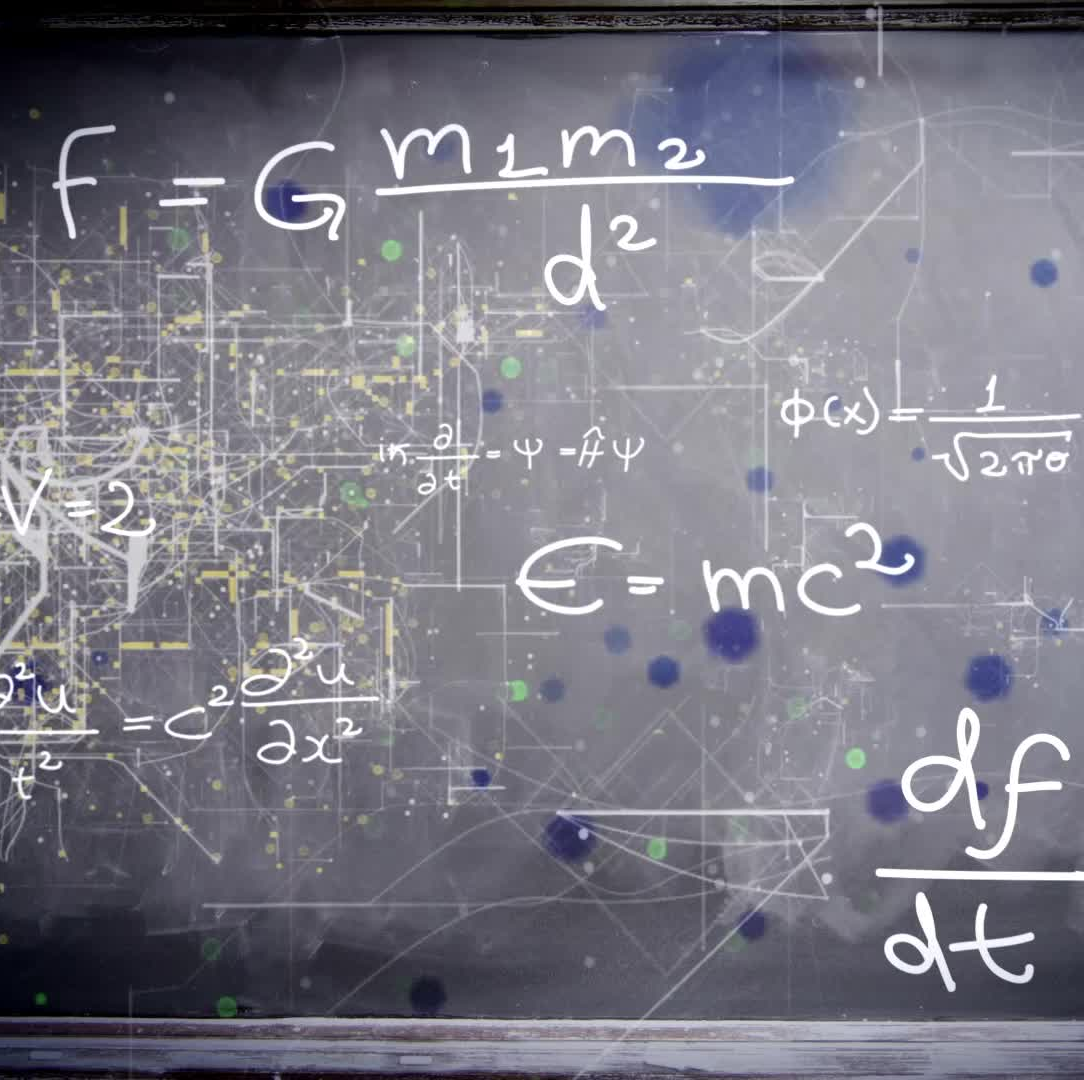 f = G m1m2 / d²
ϕ(x) = 1 / √2πσ
iℏ ∂/∂t = Ψ = Ĥ Ψ
V = 2
E = mc²
∂²u / t² = c² ∂²u / ∂x²
df / dt